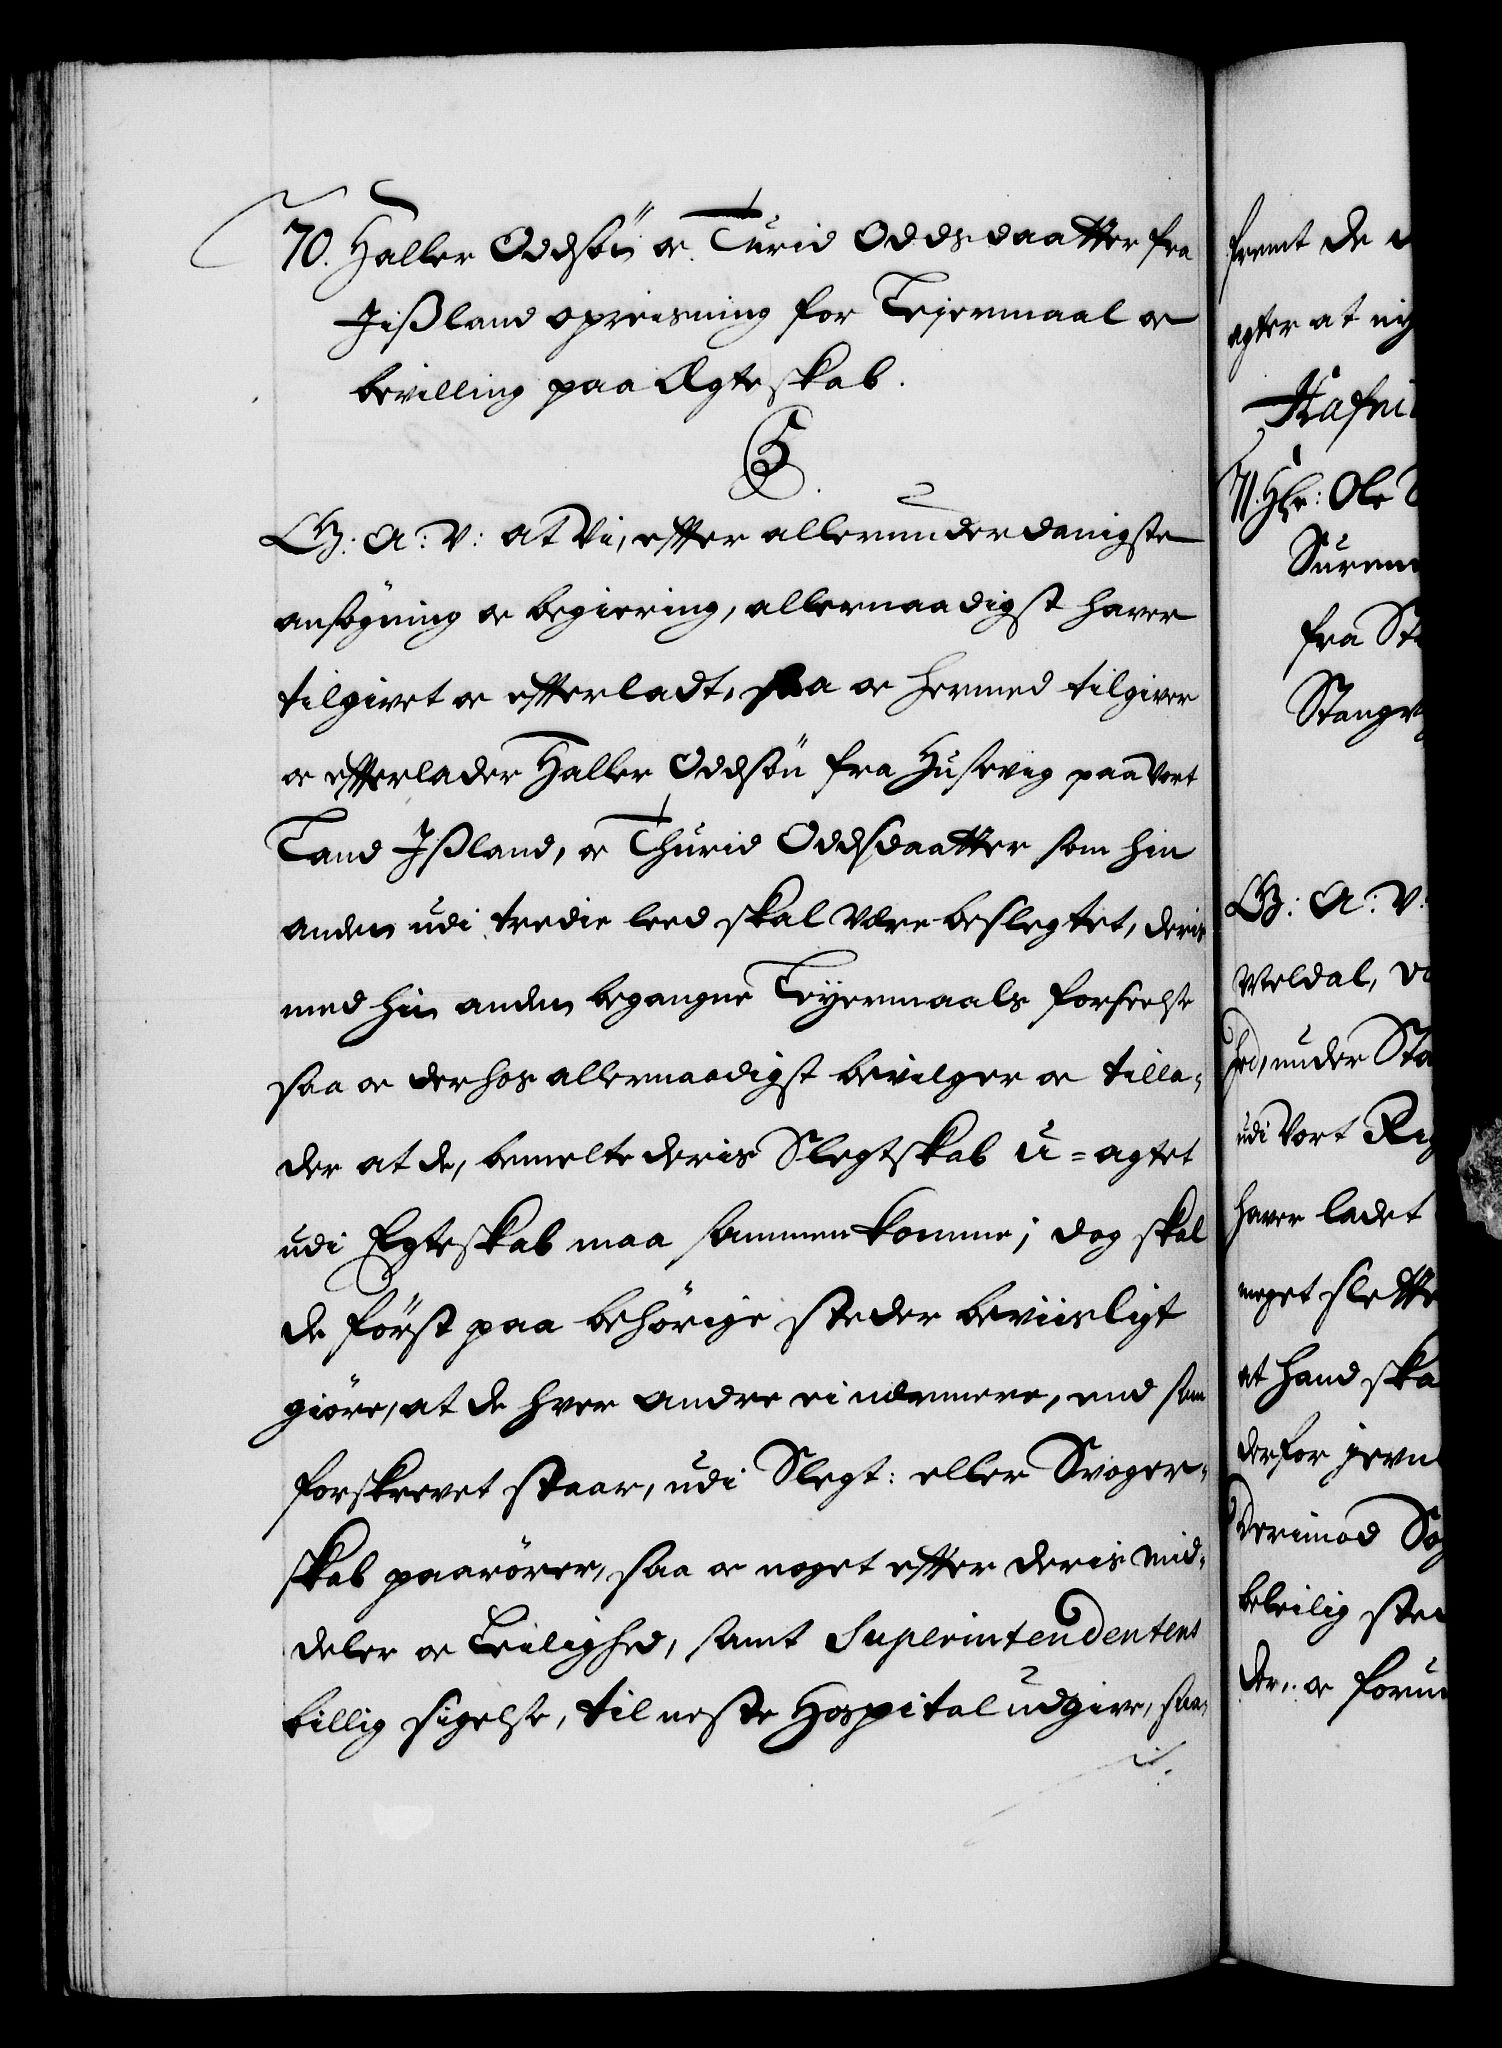 70. Haller Oddsön oc Turid Oddsdaatter fra
Jißland opreisning for Lejermaal oc
bevilling paa Ægteskab.
C5.
G: A: V: at Vi, effter allerunderdanigste
ansøgning oc begiering, allernaadigst haver
tilgivet oc effterladt, saa oc hermed tilgiver
oc effterlader Haller Oddsön fra Husevig paa Vort
Land Jßland, oc Thurid Oddsdaatter som hin
anden udi tredie leed skal være beslegtet, deris
med hin anden begangne Leyermaals forseelse
saa oc derhos allernaadigst bevilger oc tilla-
der at de, bemelte deris Slegtskab u-agtet
udi Egteskab maa sammenkomme; dog skal
de först paa behörige steder beviisligt
giöre, at de hver andre ei nærmere, end som
forskrevet staar, udi Slegt: eller Svoger-
skab paarörer, saa oc noget effter deris mid-
deler oc Leilighed, samt Superintendentens
billig sigelse, til neste Hospital udgive, saa-
fremt de
agter at nÿ
Hafni
71. Hr: Ole
Suren
fra St
Stangv
G: A: V:
Meldal,
hed, under Sta
udi Vort Rig
haver ladet
meget slette
at hand ska
derfor jevn
Derimod Sog
beleilig sted
der, oc forun